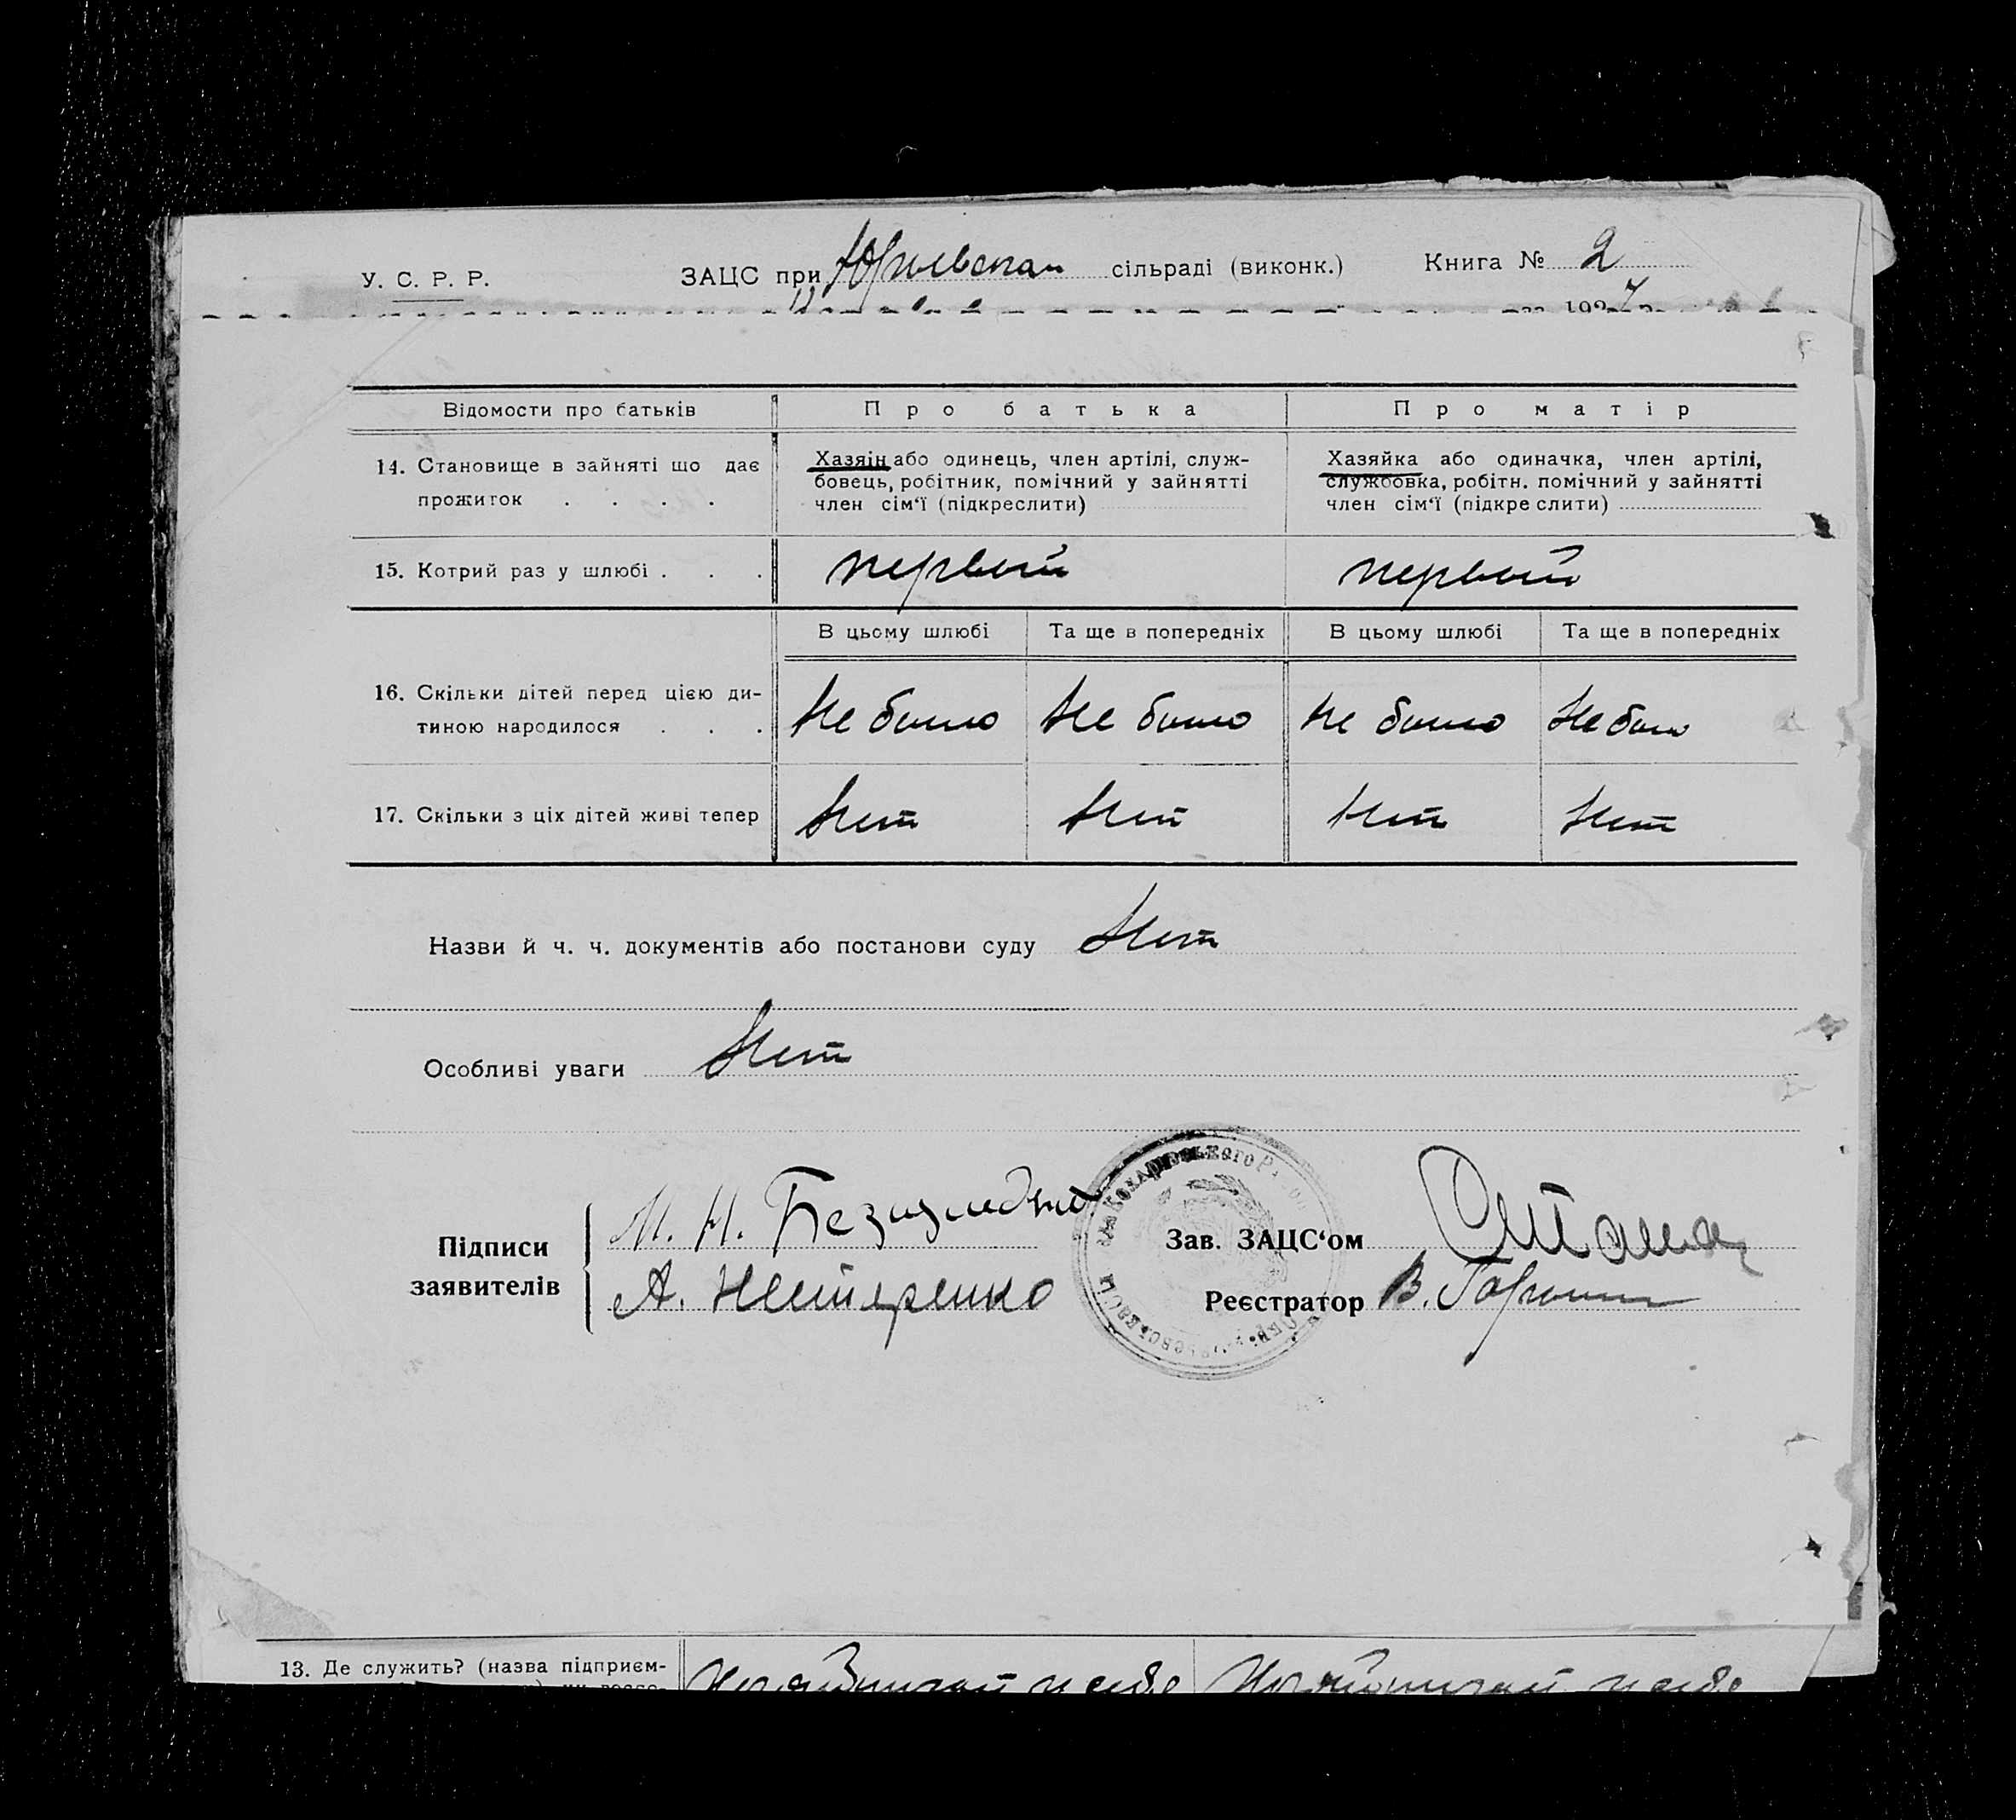 У. С. Р. Р.
ЗАЦС при Юрьевской сільраді (виконк.)
Книга № 2
1927 р.
Відомости про батьків
Про батька
Про матір
14. Становище в зайняті що дає
прожиток . . . .
Хазяїн або одинець, член артілі, служ-
бовець, робітник, помічний у зайнятті
член сім‘ї (підкреслити)
Хазяйка або одиначка, член артілі,
службовка, робітн. помічний у зайнятті
член сім‘ї (підкреслити)
15. Котрий раз у шлюбі . . .
первый
первый
В цьому шлюбі
Та ще в попередніх
В цьому шлюбі
Та ще в попередніх
16. Скільки дітей перед цією ди-
тиною народилося . . .
Не было
Не было
Не было
Не было
17. Скільки з ціх дітей живі тепер
Нет
Нет
Нет
Нет
Назви й ч. ч. документів або постанови суду Нет
Особливі уваги Нет
Підписи
заявителів
М. Н.
А. Нестеренко
Зав. ЗАЦС‘ом
Реєстратор В.
13. Де служить? (назва підприєм-